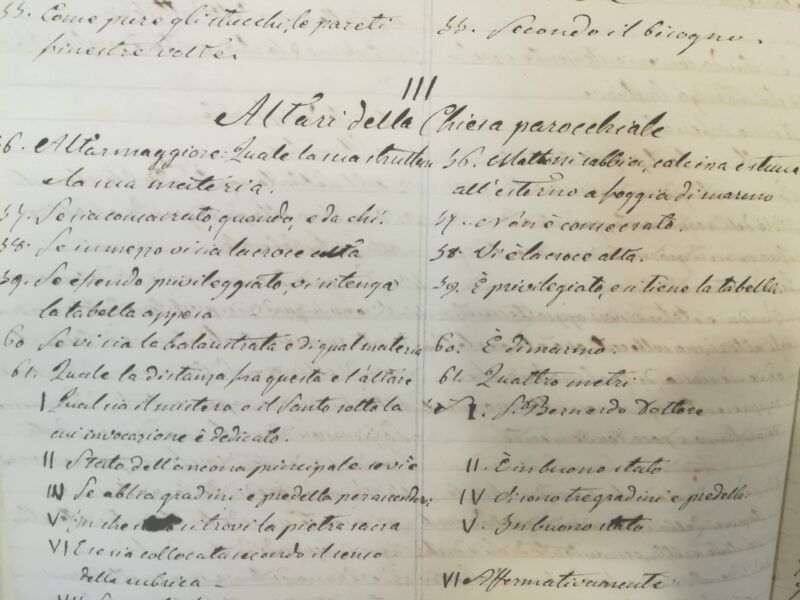 55. Come pure gli stucchi, le pareti
finestre volte.
55. Secondo il bisogno.
III
Altari della Chiesa parocchiale
56. Altar maggiore: Quale la sua struttura
e la sua materia.
56. Mattoni sabbia, calcina e
all'esterno a foggia di marmo
57. Se sia consacrato, quando, e da chi.
57. Non è consecrato.
58. Se in mezzo vi sia la croce alta
58. Vi è la croce alta.
59. Se essendo privileggiato, vi si tenga
la tabella appesa
59. È privilegiato, e si tiene la tabella.
60 Se vi sia la balaustrata e di qual materia
60. È di marmo.
61. Quale la distanza fra questa e l'altare
61. Quattro metri
I Qual sia il mistero o il Santo sotto la
cui invocazione è dedicato.
I. S. Bernardo Dottore
II Stato dell'ancona principale se vi è
II. È in buono stato
IV Se abbia gradini e predella per ascendere
IV Vi sono tre gradini e predella
V In che si trovi la pietra sacra
V. In buono stato
VI E se sia collocata secondo il senso
della rubrica -
VI Affermativamente